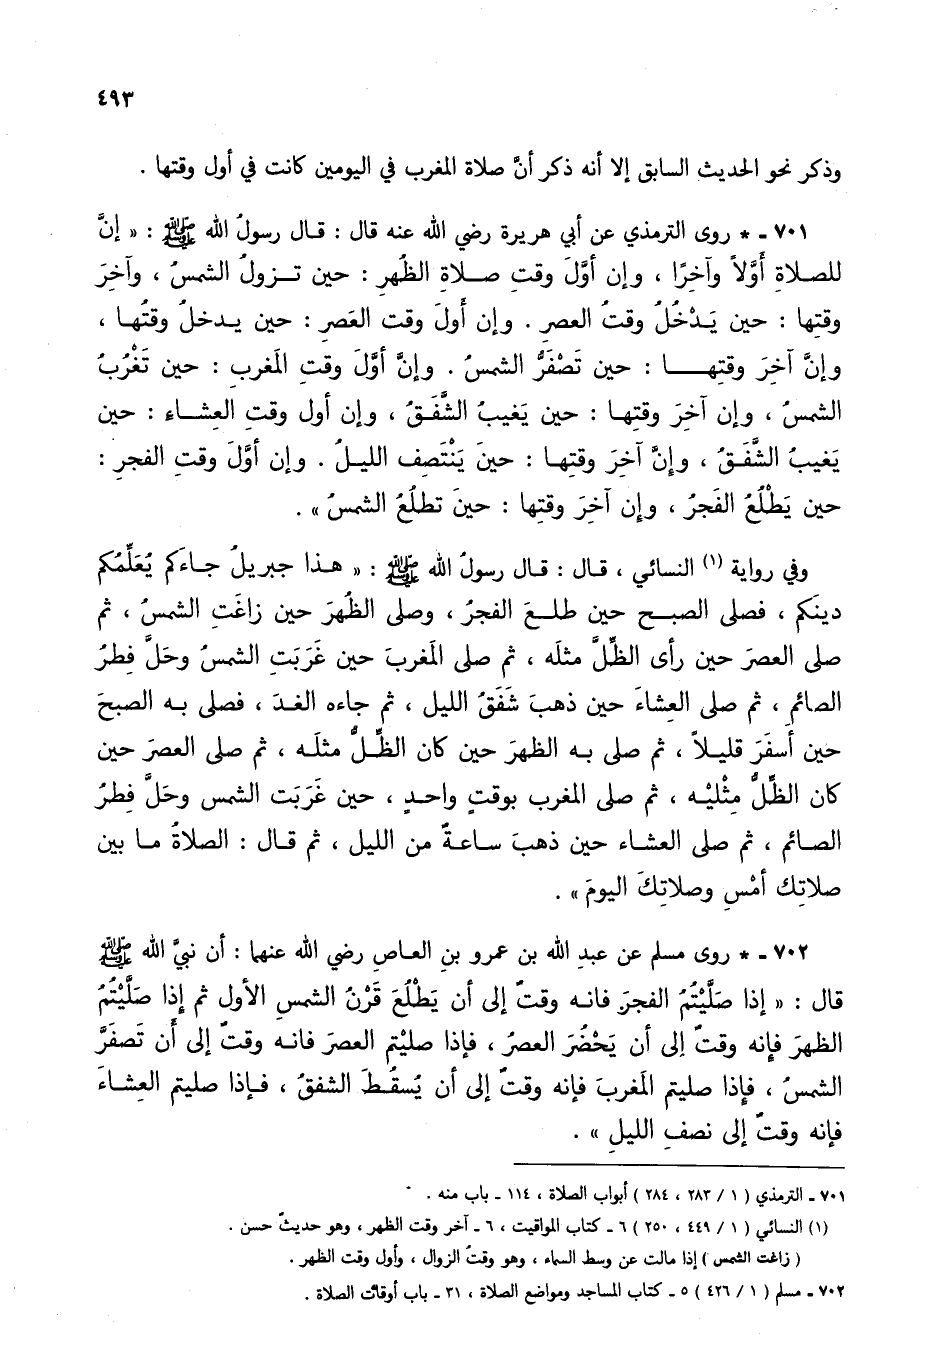 ٤٩٣
وذكر نحو الحديث السابق إلا أنه ذكر أنَّ صلاة المغرب في اليومين كانت في أول وقتها .
٧٠١ - * روى الترمذي عن أبي هريرة رضي الله عنه قال : قال رسولُ الله ﷺ : « إنَّ
للصلاةِ أَوَّلاً وآخرًا ، وإن أوَّلَ وقتِ صلاةِ الظُهرِ : حين تزولُ الشمسُ ، وآخِرَ
وقتِها : حين يَدْخُلُ وقتُ العصرِ . وإن أَولَ وقت العَصرِ : حين يدخلُ وقتُها ،
وإنَّ آخِرَ وقتِها : حين تَصْفَرُّ الشمسُ . وإنَّ أوَّلَ وقتِ المَغربِ : حين تَغْرُبُ
الشمسُ ، وإن آخِرَ وقتِها : حين يَغيبُ الشَّفَقُ ، وإن أول وقتِ العِشاء : حين
يَغيبُ الشَّفَقُ ، وإنَّ آخِرَ وقتِها : حينَ يَنْتَصِف الليلُ . وإن أوَّلَ وقتِ الفجرِ :
حين يَطْلُعُ الفَجرُ ، وإن آخِرَ وقتِها : حينَ تطلُعُ الشمسُ » .
وفي رواية (١) النسائي ، قال : قال رسولُ الله ﷺ : « هذا جبريلُ جاءَكم يُعَلِّمُكم
دينَكم ، فصلى الصبح حين طلعَ الفجرُ ، وصلى الظُهرَ حين زاغَتِ الشمسُ ، ثم
صلى العصرَ حين رأى الظِّلَّ مثلَه ، ثم صلى المَغربَ حين غَرَبَتِ الشمسُ وحَلَّ فِطرُ
الصائمِ ، ثم صلى العِشاءَ حين ذهبَ شَفَقُ الليل ، ثم جاءه الغدَ ، فصلى به الصبحَ
حين أَسفَرَ قليلاً ، ثم صلى به الظهرَ حين كان الظِّلُّ مثلَه ، ثم صلى العصرَ حين
كان الظِّلُّ مِثْليْه ، ثم صلى المَغرب بوقتٍ واحدٍ ، حين غَرَبَت الشمس وحَلَّ فِطرُ
الصائم ، ثم صلى العشاء حين ذهبَ ساعةٌ من الليل ، ثم قال : الصلاةُ ما بين
صلاتِك أمْسِ وصلاتِكَ اليومَ » .
٧٠٢ - * روى مسلم عن عبدِ الله بن عمرو بنِ العاصِ رضي الله عنهما : أن نبيَّ الله ﷺ
قال : « إذا صَلَّيْتُمُ الفجرَ فانه وقتٌ إلى أن يَطْلُعَ قَرْنُ الشمسِ الأول ثم إذا صَلَّيْتُمُ
الظهرَ فإنه وقتٌ إلى أن يَحْضُرَ العصرُ ، فإذا صليْتم العصرَ فانه وقتٌ إلى أَن تَصفَرَّ
الشمسُ ، فإذا صليتم المَغربَ فإنه وقتٌ إلى أن يُسقُطَ الشفقُ ، فإذا صليتم العِشاءَ
فإنه وقتٌ إلى نصفِ الليلِ » .
٧٠١ - الترمذي ( ١ / ٢٨٣ ، ٢٨٤ ) أبواب الصلاة ، ١١٤ - باب منه .
(١) النسائي ( ١ / ٤٤٩ ، ٢٥٠ ) ٦ - كتاب المواقيت ، ٦ - آخر وقت الظهر ، وهو حديثٌ حسن .
( زاغت الشمس ) إذا مالت عن وسط السماء ، وهو وقتُ الزوال ، وأول وقت الظهر .
٧٠٢ - مسلم ( ١ / ٤٢٦ ) ٥ - كتاب المساجد ومواضع الصلاة ، ٣١ - باب أوقات الصلاة .